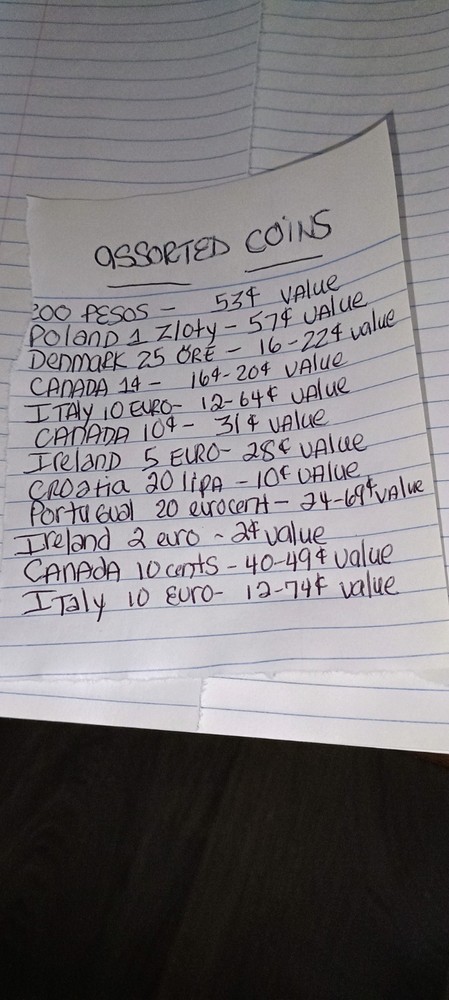 ASSORTED COINS
200 PESOS - 53¢ VALUE
Poland 1 Zloty - 57¢ VALUE
Denmark 25 ORE - 16-22¢ value
CANADA 1¢ - 16¢-20¢ VALUE
ITALY 10 EURO- 12-64¢ VALUE
CANADA 10¢- 31¢ VALUE
Ireland 5 EURO- 28¢ VALUE
CROatia 20 lipA - 10¢ VALUE
Portugual 20 eurocent- 24-69¢ VALUE
Ireland 2 euro - 2¢ value
CANADA 10 cents - 40-49¢ value
ITaly 10 Euro- 12-74¢ value